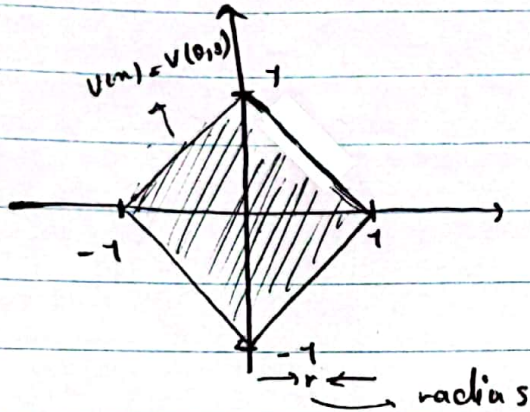 V(x) = V(0,3)
1
-1
1
-1
→ r ←
radius